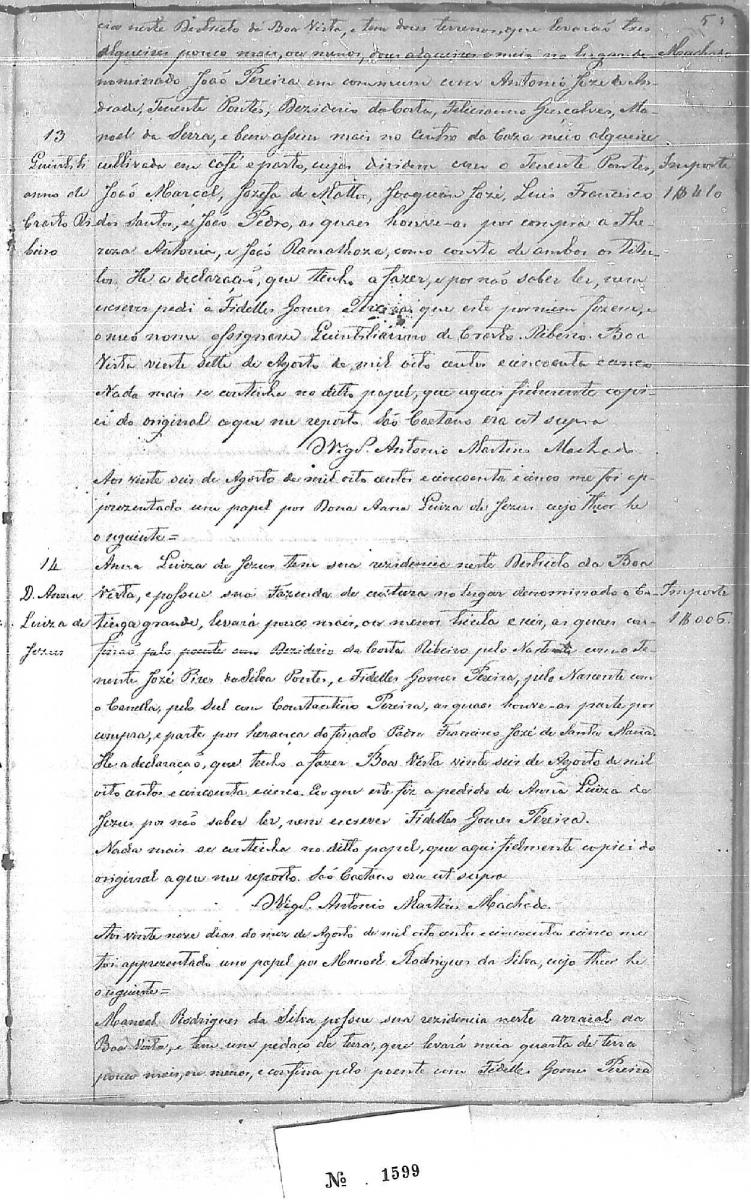 5
cia neste Destricto da Boa Vista, e tem dous terrenos, que levarão tres
alqueires pouco mais, ou menos, dous alqueires e meio no lugar de- Machado
nominado João Pereira em commum com Antonio Joze de An-
drade, Tenente Pontes, Deziderio da Costa, Felicianno Gonçalves, Ma-
noel da Serra, e bem assim mais no centro da Caza meio alqueire
13
Quintili
anno de
Crasto Ri
beiro
cultivada em café e pasto, cujos dividem com o Tenente Pontes,
João Marcal, Jozefa de Mattos, Joaquim Jozé, Luis Francisco
dos Santos, e João Pedro, as quaes houve-as por compra a The-
reza Antonia, e João Ramalhoza, como consta de ambos os titu-
Importe
1$410
los. He a declaração, que tenho a fazer, e por não saber ler, nem
escrever pedi a Fidelles Gomes Pereira que este por mim fizesse, e
o meo nome assignasse Quintilianno de Crasto Ribeiro. Boa
Vista vinte sette de Agosto de mil oito centos e cincoenta e cinco
Nada mais se continha no ditto papel, que aqui fielmente copi-
ei do original a que me reporto. São Caetano era ut supra
O Vigº. Antonio Martins Machado
Aos vinte seis de Agosto de mil oito centos e cincoenta e cinco me foi ap-
prezentado um papel por Dona Anna Luiza de Jezus cujo theor he
o seguinte=
14
D. Anna
Luiza de
Jezus
Anna Luiza de Jezus tem sua rezidencia neste Destricto da Boa
Vista, e possue sua Fazenda de cultura no lugar denominado o Ca-
tinga grande, levará pouco mais, ou menos trinta e seis, as quaes con-
Importe
1$006.
finão pelo poente com Deziderio da Costa Ribeiro pelo Norte com o Te-
nente Jozé Pires da Silva Pontes, e Fidelles Gomes Pereira, pelo Nascente com
o Canella, pelo Sul com Constantino Pereira, as quaes houve-as parte por
compra, e parte por herança do finado Padre Francisco Jozé de Santa Maria.
He a declaração, que tenho a fazer Boa Vista vinte seis de Agosto de mil
oito centos e cincoenta e cinco. Eu que este fiz a pedido de Anna Luiza de
Jezus por não saber ler, nem escrever Fidelles Gomes Pereira.
Nada mais se continha no ditto papel, que aqui fielmente copiei do
original a que me reporto. São Caetano era ut supra
O Vigº. Antonio Martins Machado.
Aos vinte nove dias do mez de Agosto de mil oito centos e cincoenta e cinco me
foi apprezentado um papel por Manoel Rodrigues da Silva, cujo theor he
o seguinte=
Manoel Rodrigues da Silva possue sua rezidencia neste arraial da
Boa Vista, e tem um pedaço de terra, que levará meia quarta de terra
pouco mais, ou menos, e confina pelo poente com Fidelles Gomes Pereira
Nº 1599